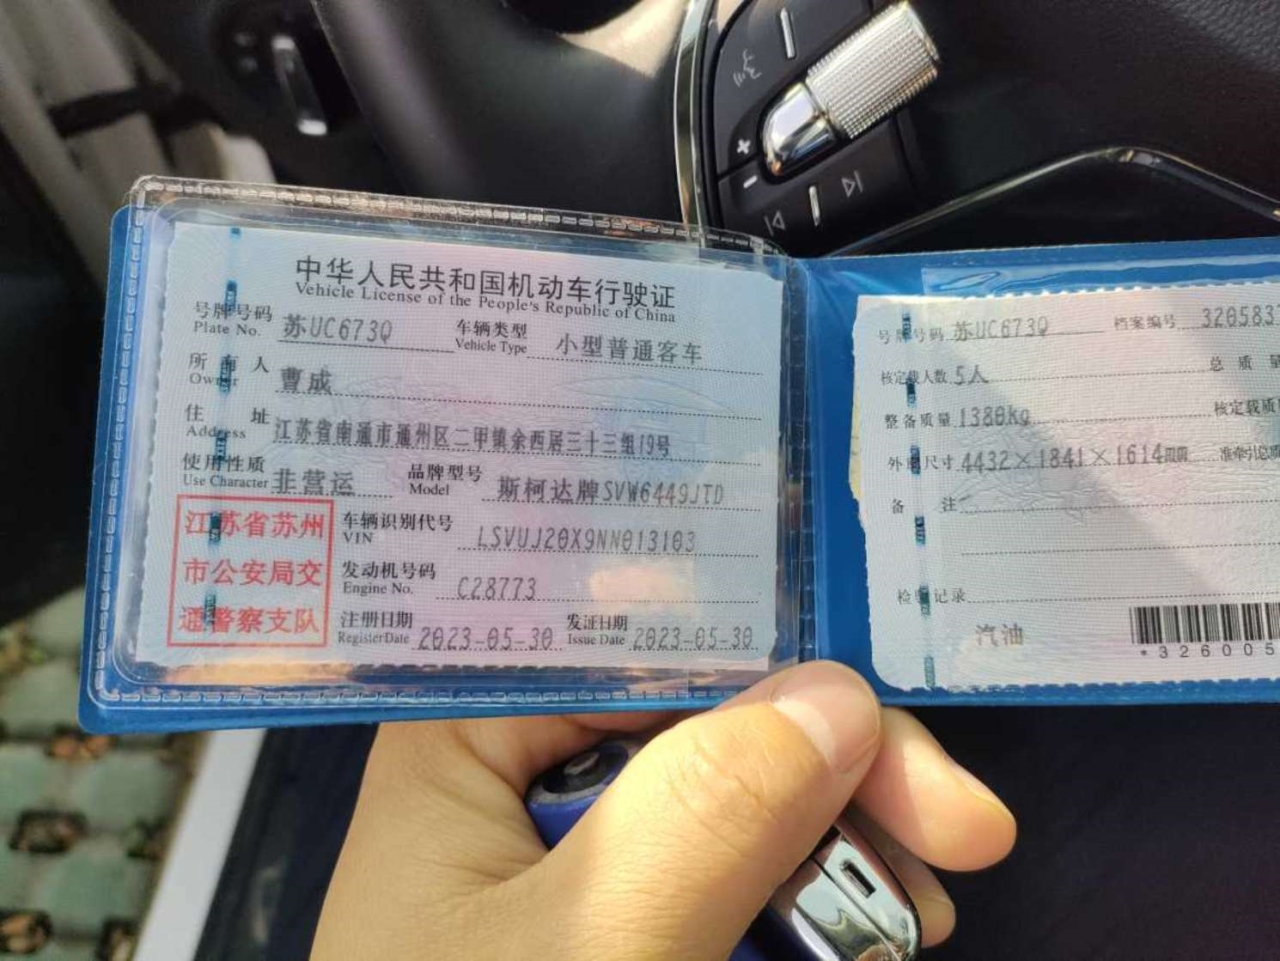 中华人民共和国机动车行驶证
Vehicle License of the People's Republic of China
号牌号码 苏UC673Q 车辆类型 小型普通客车
Plate No. Vehicle Type
所有人 曹成
Owner
住址 江苏省南通市通州区二甲镇余西居三十三组19号
Address
使用性质 非营运 品牌型号 斯柯达牌SVW6449JTD
Use Character Model
江苏省苏州
市公安局交
通警察支队
车辆识别代号 LSVUJ20X9NN013103
VIN
发动机号码 C28773
Engine No.
注册日期 2023-05-30 发证日期 2023-05-30
Register Date Issue Date
号牌号码 苏UC673Q 档案编号 320583
核定载人数 5人 总质量
整备质量 1380kg 核定载质
外廓尺寸 4432×1841×1614 准牵引总质
备注
检验记录
汽油
*326005